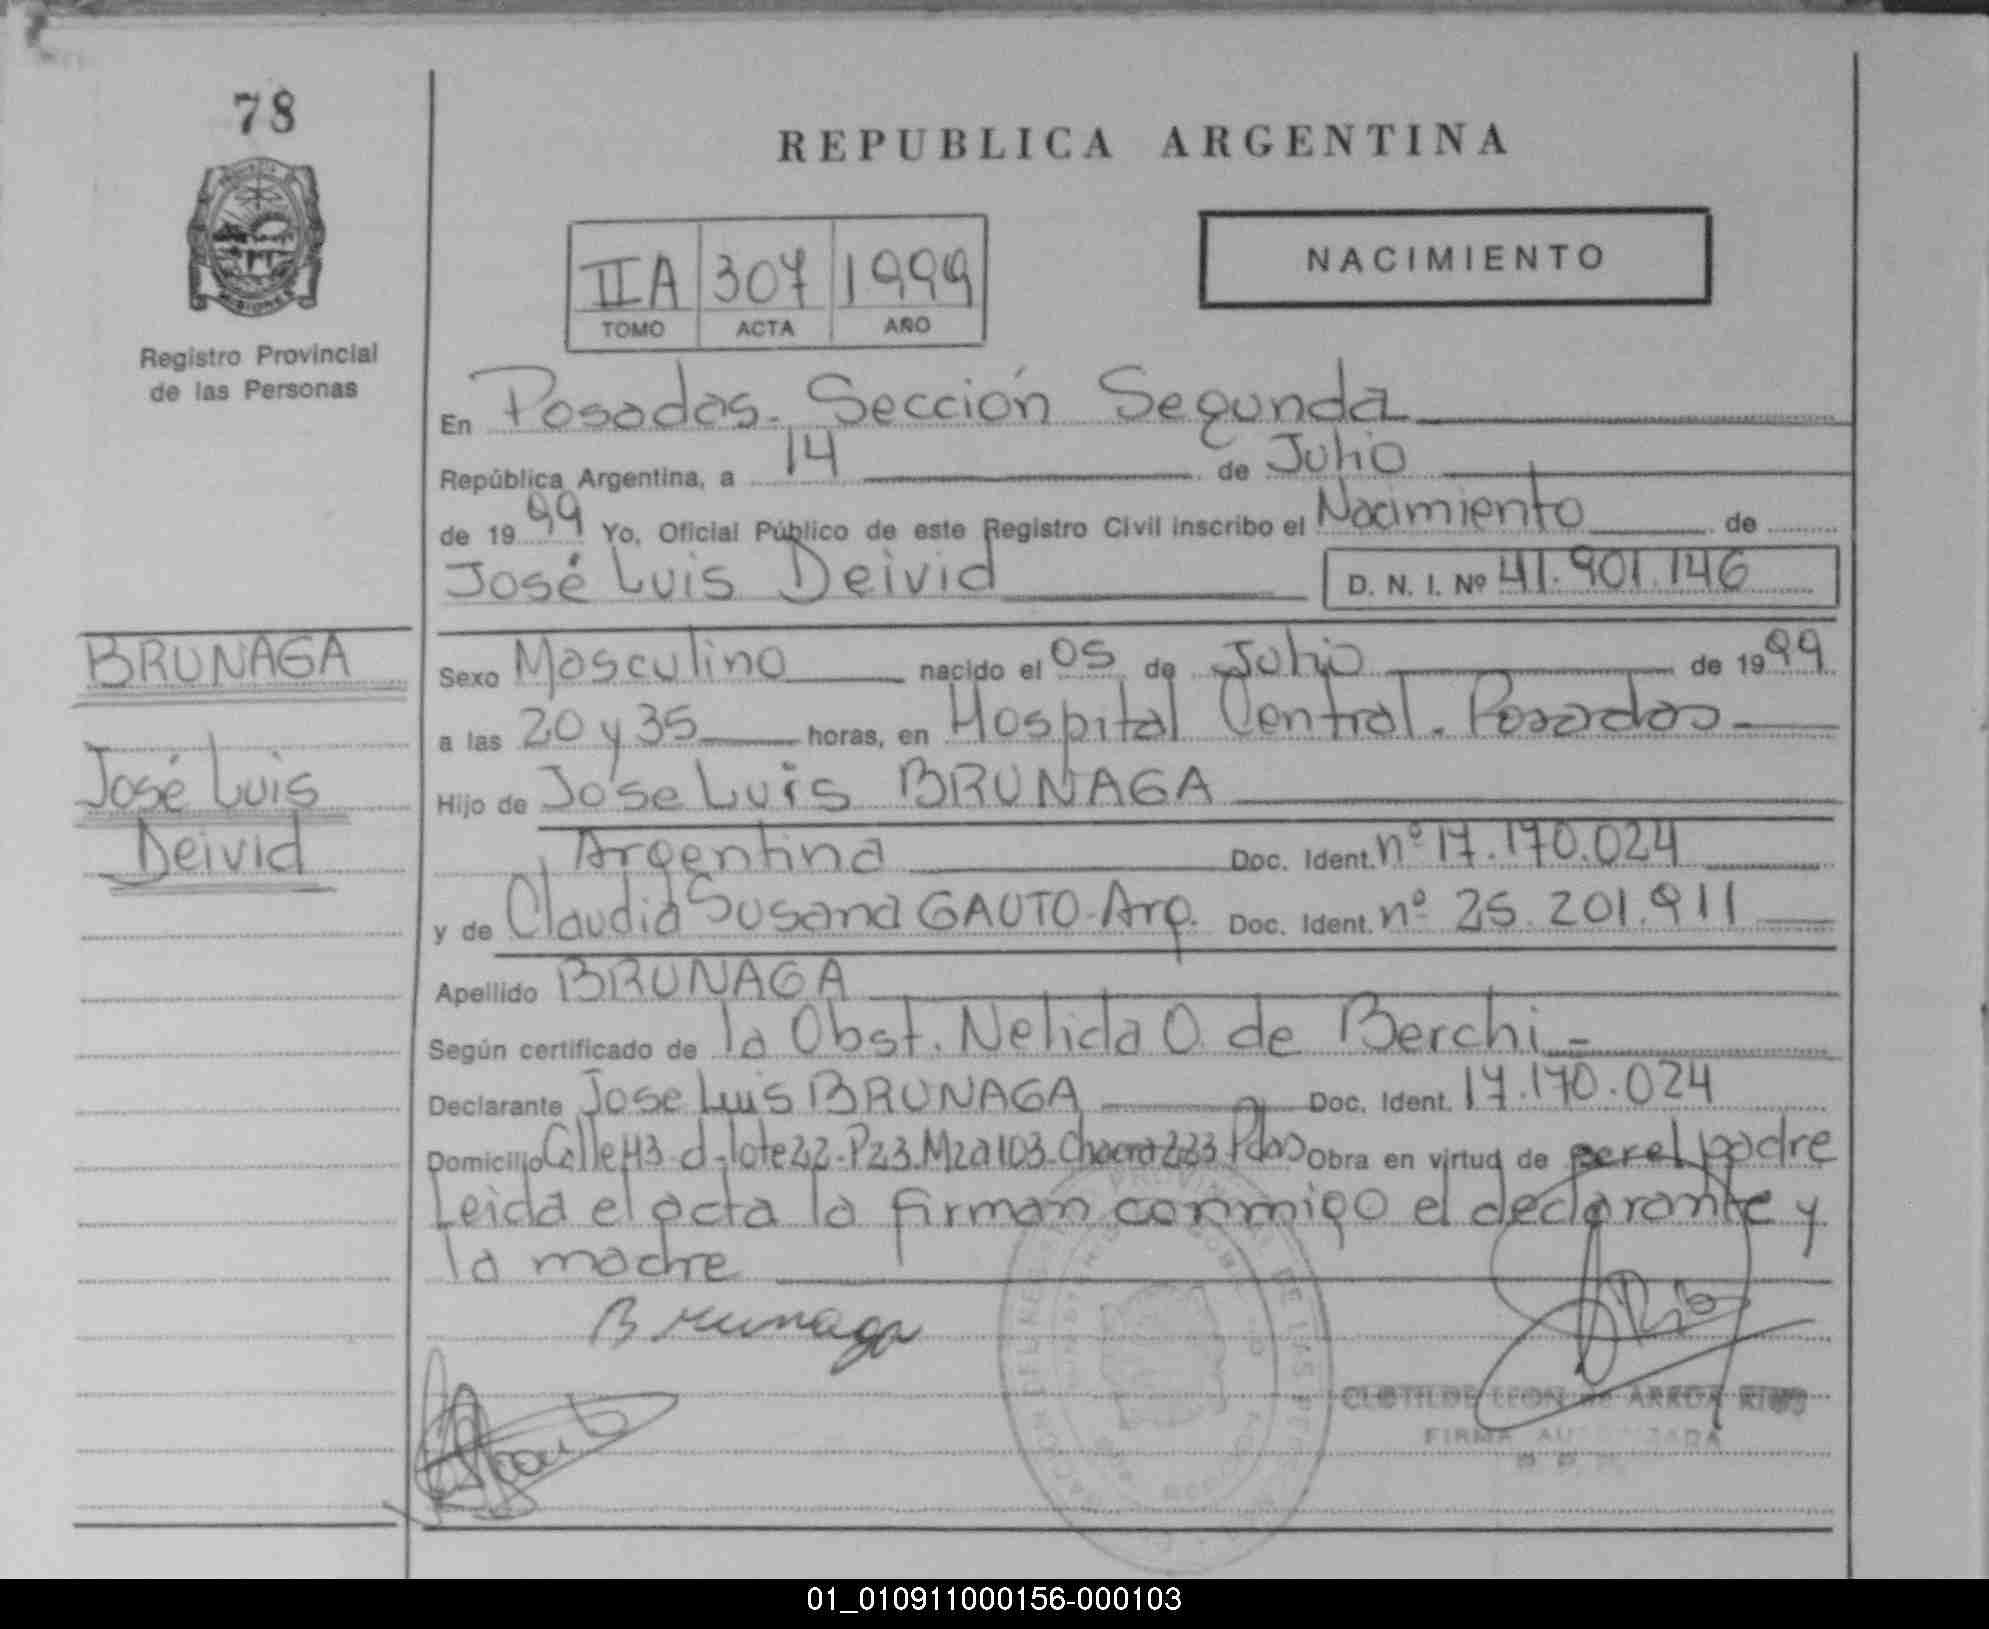 78
REPUBLICA ARGENTINA
NACIMIENTO
IIA 307 1999
TOMO ACTA AÑO
Registro Provincial
de las Personas
En Posadas. Sección Segunda
República Argentina, a 14 de Julio
de 1999 Yo, Oficial Público de este Registro Civil inscribo el Nacimiento de
José Luis Deivid D. N. I. Nº 41.901.146
BRUNAGA
Sexo Masculino nacido el 05 de Julio de 1999
a las 20 y 35 horas, en Hospital Central. Posadas
José Luis
Deivid
Hijo de Jose Luis BRUNAGA
Argentina Doc. Ident. nº 17.170.024
y de Claudia Susana GAUTO-Arg. Doc. Ident. nº 25.201.911
Apellido BRUNAGA
Según certificado de la Obst. Nelida O. de Berchi
Declarante Jose Luis BRUNAGA Doc. Ident. 17.170.024
Domicilio Calle 43-d-lote 22-P23.Mza 103-Chacra 223 Pdas Obra en virtud de ser el padre
Leida el acta la firman conmigo el declarante y
la madre
Brunaga
CLOTILDE LEON de ARROA RIOS
FIRMA AUTORIZADA
01_010911000156-000103